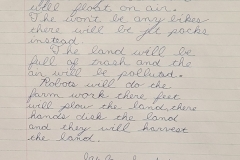 will float on air.
The won't be any bikes
there will be jet packs
instead.
The land will be
full of trash and the
air will be polluted.
Robots will do the
farm work there feet
will plow the land there
hands disk the land
and they will harvest
the land.